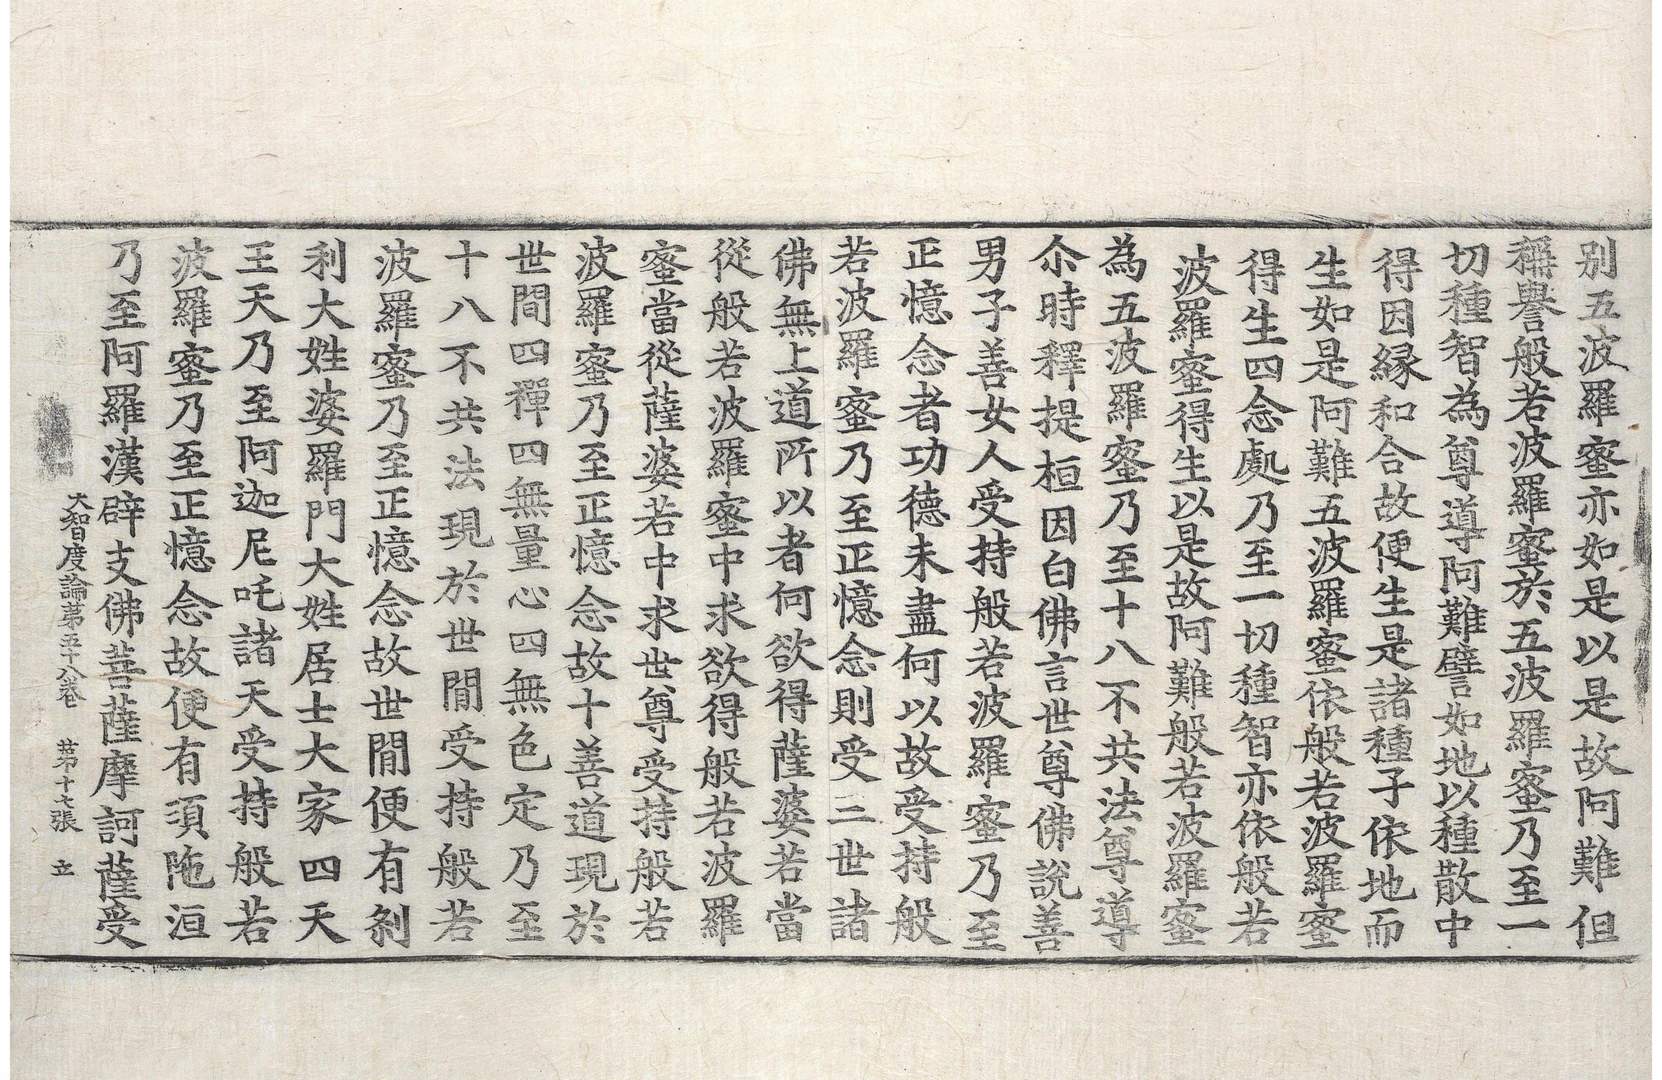 別五波羅蜜亦如是以是故阿難但
稱譽般若波羅蜜於五波羅蜜乃至一
切種智為尊導阿難譬如地以種散中
得因縁和合故便生是諸種子依地而
生如是阿難五波羅蜜依般若波羅蜜
得生四念處乃至一切種智亦依般若
波羅蜜得生以是故阿難般若波羅蜜
為五波羅蜜乃至十八不共法尊導
尒時釋提桓因白佛言世尊佛說善
男子善女人受持般若波羅蜜乃至
正憶念者功德未盡何以故受持般
若波羅蜜乃至正憶念則受三世諸
佛無上道所以者何欲得薩婆若當
從般若波羅蜜中求欲得般若波羅
蜜當從薩婆若中求世尊受持般若
波羅蜜乃至正憶念故十善道現於
世間四禪四無量心四無色定乃至
十八不共法現於世間受持般若
波羅蜜乃至正憶念故世間便有刹
利大姓婆羅門大姓居士大家四天
王天乃至阿迦尼吒諸天受持般若
波羅蜜乃至正憶念故便有須陁洹
乃至阿羅漢辟支佛菩薩摩訶薩受
大智度論第五十八卷 苐十七張 立